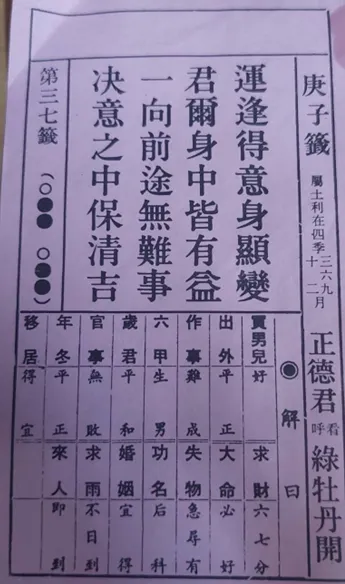 庚子籤 屬土利在四季三六九十二月 正德君看呼綠牡丹開
運逢得意身顯變
君爾身中皆有益
一向前途無難事
决意之中保清吉
第三七籤 (○●● ○●●)
◉解曰
買男兒好 求財六七分
出外平正 大命必好
作事難成 失物急尋有
六甲生男 功名后科
歲君平和 婚姻宜得
官事無敗 求雨不日到
年冬平正 來人即到
移居得宜